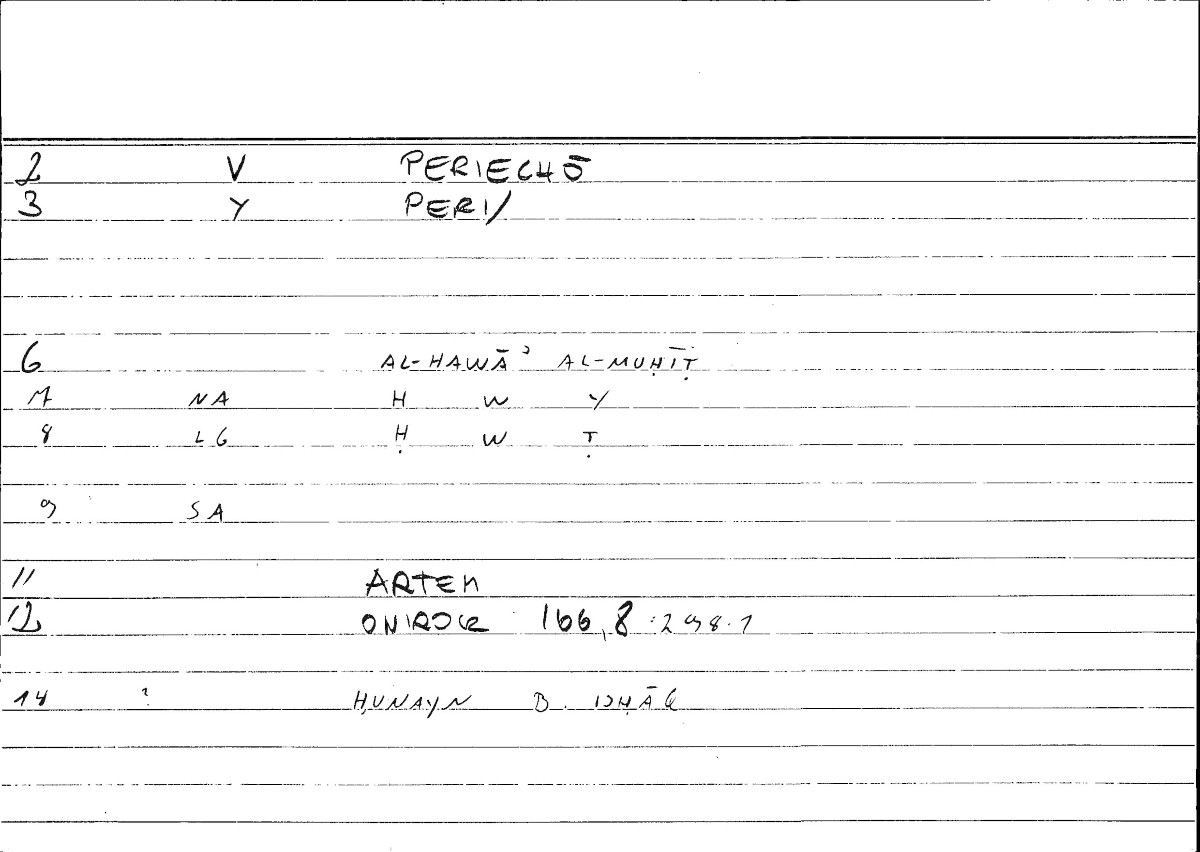 2 V PERIECHŌ
3 Y PERI/
6 AL-HAWĀʾ AL-MUḤĪṬ
7 NA H W Y
8 LG Ḥ W Ṭ
9 SA
11 ARTEM
12 ONIROCR 166,8 : 298.1
14 ? ḤUNAYN B. ISḤĀQ